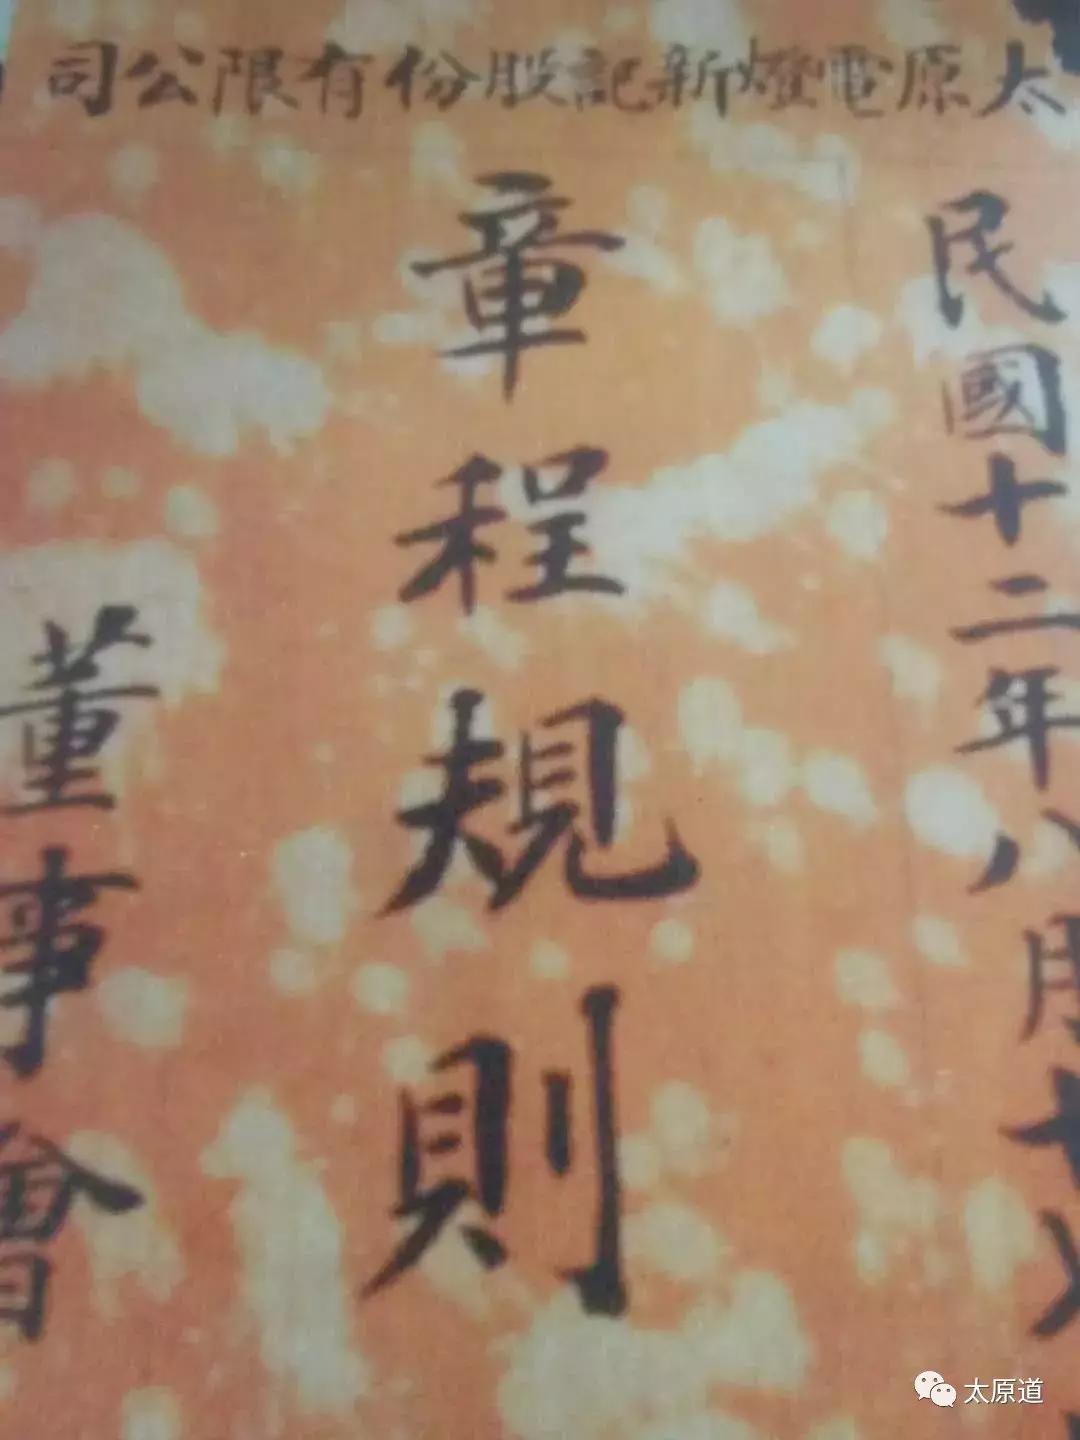 太原電燈新記股份有限公司
民國十二年八月十
章程規則
董事會
太原道